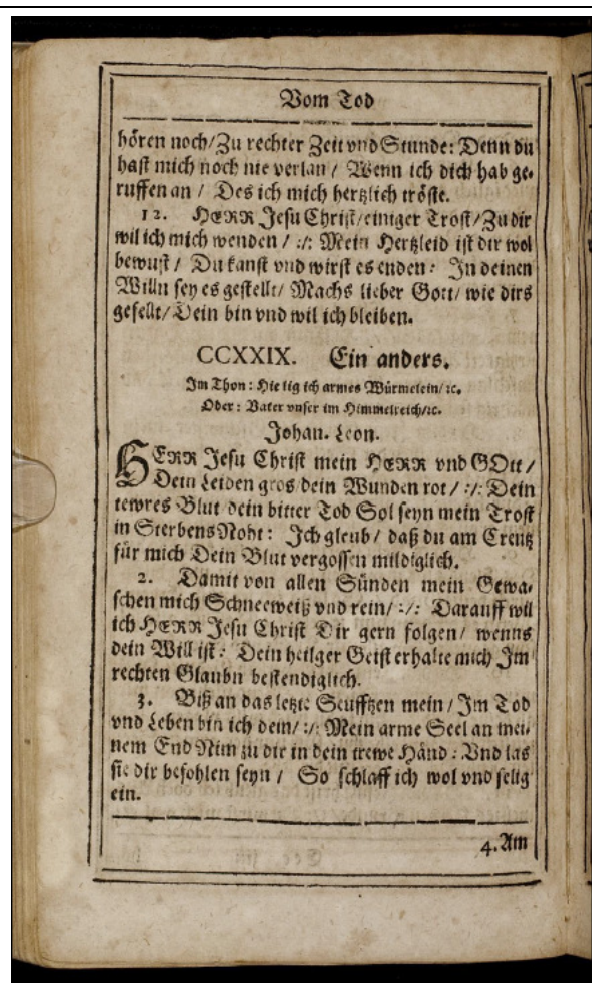 Vom Tod
hören noch/Zu rechter Zeit vnd Stunde: Denn du
hast mich noch nie verlan / Wenn ich dich hab ge-
ruffen an / Des ich mich hertzlich tröste.
12. HERR Jesu Christ/einiger Trost/Zu dir
wil ich mich wenden / :/: Mein Hertzleid ist dir wol
bewust / Du kanst vnd wirst es enden: In deinen
Willn sey es gestellt/ Machs lieber Gott/ wie dirs
gefellt/Dein bin vnd wil ich bleiben.
CCXXIX. Ein anders.
Im Thon: Hie lig ich armes Würmelein/ꝛc.
Oder: Vater vnser im Himmelreich/ꝛc.
Johan. Leon.
HERR Jesu Christ mein HERR vnd GOtt /
Dein Leiden gros/dein Wunden rot / :/: Dein
tewres Blut dein bitter Tod Sol seyn mein Trost
in SterbensNoht: Ich gleub / daß du am Creutz
für mich Dein Blut vergossen mildiglich.
2. Damit von allen Sünden mein Gewa-
schen mich Schneeweiß vnd rein/ :/: Darauff wil
ich HERR Jesu Christ Dir gern folgen/ wenns
dein Will ist: Dein heilger Geist erhalte mich Im
rechten Glaubn bestendiglich.
3. Biß an das letzte Seufftzen mein / Im Tod
vnd Leben bin ich dein/ :/: Mein arme Seel an mei-
nem End Nim zu dir in dein trewe Händ: Vnd las
sie dir befohlen seyn / So schlaff ich wol vnd selig
ein.
4. Am